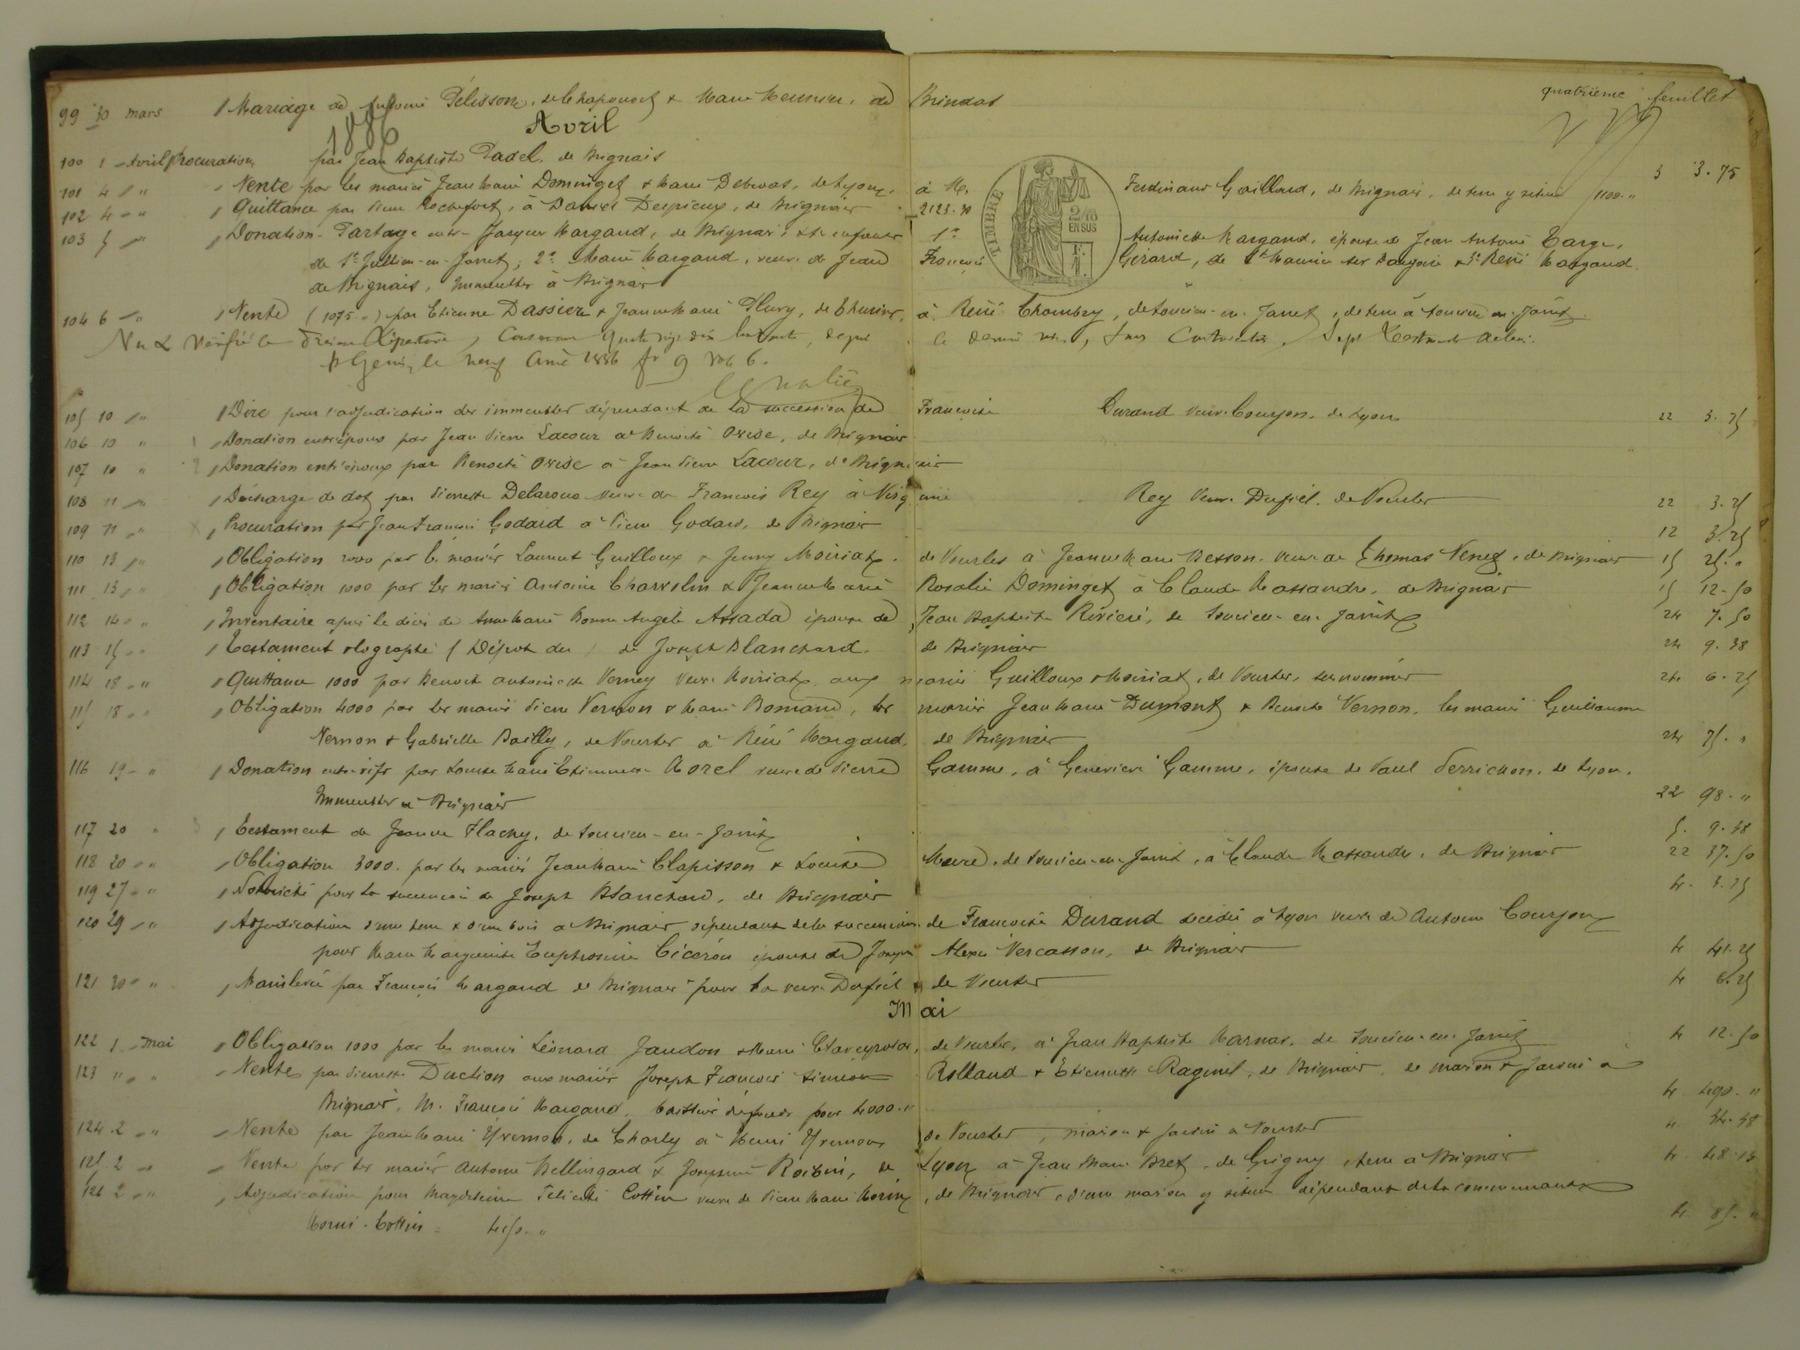 quatrième feuillet
99 30 mars Mariage de Antoine Pélisson, de Chaponost & Marie Meunier, de Brindas
1886
Avril
100 1 Avril Procuration par Jean Baptiste Padel, de Brignais 3 3.75
101 4 " Vente par les mariés Jean Marie Dominget & Marie Debwas, de Lyon, à M. Ferdinand Gaillard, de Brignais, de terre y située 1100 "
102 4 " Quittance par Pierre Rochefort, à Daniel Despieux, de Brignais 2123.70
TIMBRE 2/10 EN SUS
103 5 " Donation-Partage entre Jacques Margand, de Brignais, & ses enfants 1° Antoinette Margand, épouse de Jean Antoine Targe,
de St Julien-en-Jarret, 2° Marie Margand, veuve de Jean François Gérard, de St Maurice sur Dargoire & 3° René Margand
de Brignais, immeubles à Brignais
104 6 " Vente (1075 ") par Etienne Dassier & Jeanne Marie Fleury, de à René Chambry, de Soucieu-en-Jarret, de terre à Soucieu-en-Jarret
Vu & Vérifié le Répertoire, depuis le dernier visa,
St Genis, le neuf Avril 1886 fo 9
105 10 " Dire pour l'adjudication des immeubles dépendant de la succession de Françoise Durand veuve Courjon, de Lyon 22 3.75
106 10 " Donation entre époux par Jean Pierre Lacour à Benoite Ovide, de Brignais
107 10 " Donation entre époux par Benoite Ovide à Jean Pierre Lacour, de Brignais
108 11 " Décharge de dot par Pierrette Delaroue veuve de François Rey à Virginie Rey veuve Dufiel, de Vourles 22 3.75
109 11 " Procuration par Jean François Godard à Pierre Godard, de Brignais 12 3.75
110 13 " Obligation 2000 par les mariés Laurent Guilloux & Jenny Moiriat, de Vourles à Jeanne Marie Besson, veuve de Thomas Venet, de Brignais 15 25 "
111 13 " Obligation 1000 par les mariés Antoine Charvolin & Jeanne Marie Rosalie Dominget à Claude Massandre, de Brignais 15 12.50
112 14 " Inventaire après le décès de Anne Marie Bonne Angèle Assada épouse de Jean Baptiste Rivière, de Soucieu-en-Jarret 24 7.50
113 15 " Testament olographe (Dépôt du) de Joseph Blanchard, de Brignais 24 9.38
114 18 " Quittance 1000 par Benoite Antoinette Verney veuve Moiriat aux mariés Guilloux & Moiriat, de Vourles, susnommés 24 6.25
115 18 " Obligation 4000 par les mariés Pierre Vernon & Marie Romand, les mariés Jean Marie Dumont & Benoite Vernon, les mariés Guillaume
Vernon & Gabrielle Bailly, de Vourles à René Margand, de Brignais 24 75 "
116 19 " Donation entre vifs par Louise Marie Etiennette Morel veuve de Pierre Gamme, à Geneviève Gamme, épouse de Paul Perrichon, de Lyon.
Immeubles à Brignais 22 98 "
117 20 " Testament de Jeanne Flachy, de Soucieu-en-Jarret 5 9.38
118 20 " Obligation 3000 par les mariés Jean Marie Clapisson & Louise de Soucieu-en-Jarret, à Claude Massandre, de Brignais 22 37.50
119 27 " Notoriété pour la succession de Joseph Blanchard, de Brignais 4 3.75
120 29 " Adjudication d'une terre & d'un bois à Brignais, dépendant de la succession de Françoise Durand décédée à Lyon veuve de Antoine Courjon
pour Marie Marguerite Euphrosine Cicéron épouse de Joseph Alexis Vercasson, de Brignais 4 41.25
121 30 " Mainlevée par François Margand de Brignais pour la veuve Dufiel de Vourles 4 6.25
Mai
122 1 Mai Obligation 1000 par les mariés Léonard Jandon & Marie de Vourles, à Jean Baptiste Marnas, de Soucieu-en-Jarret 4 12.50
123 " " Vente par Pierrette Duction aux mariés Joseph François Simeon Rolland & Etiennette Raginel, de Brignais, de maison & jardin à
Brignais, M. François Margand, pour 4000 " 4 490 "
124 2 " Vente par Jean Marie Yvernoo, de Charly à Henri Yvernoux de Vourles, maison & jardin à Vourles " 34.38
125 2 " Vente par les mariés Antoine Bellingard & Josephine Roibin, de Lyon à Jean Marie Bret, de Grigny, terre à Brignais 4 48.13
126 2 " Adjudication pour Magdeleine Félicité Cottin veuve de Pierre Marie Morin, de Brignais, d'une maison y située dépendant de la communauté
Morin-Cottin 4150 " 4 85 "